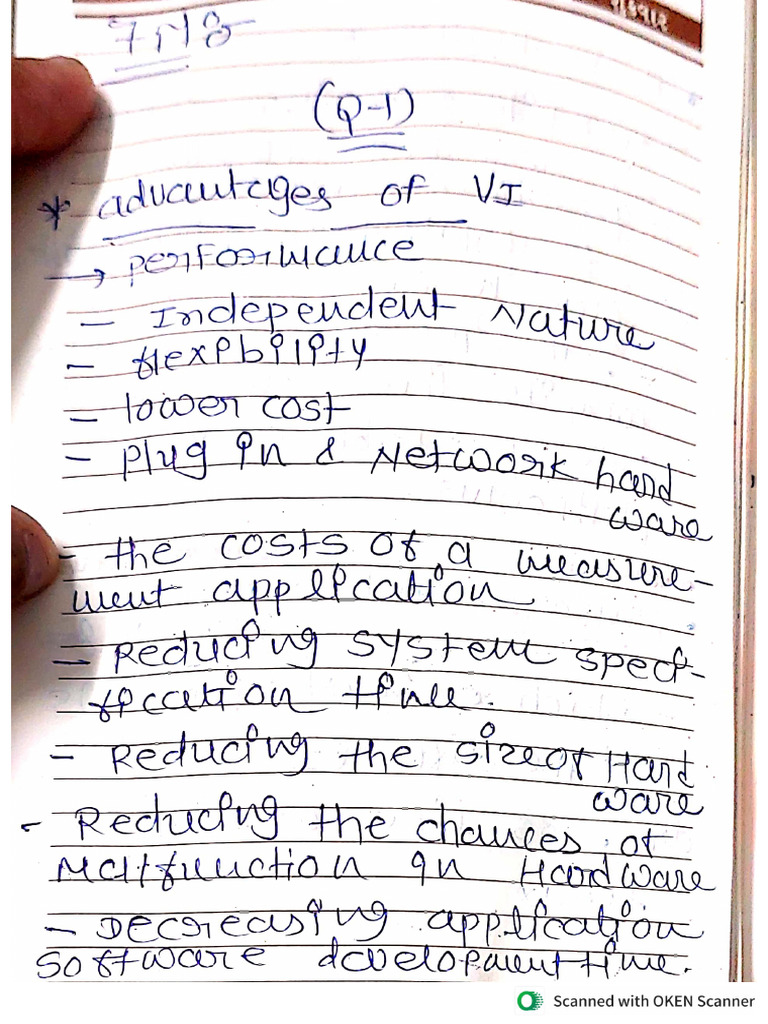 શુક્રવાર
(Q-1)
* advantages of VI
→ Performance
- Independent Nature
- flexibility
- lower cost
- Plug in & Network hard
ware
- the costs of a measure-
ment application
- Reducing system speci-
fication time.
- Reducing the size of Hard
ware
- Reducing the chances of
Malfunction in Hardware
- Decreasing application
software development time.
Scanned with OKEN Scanner